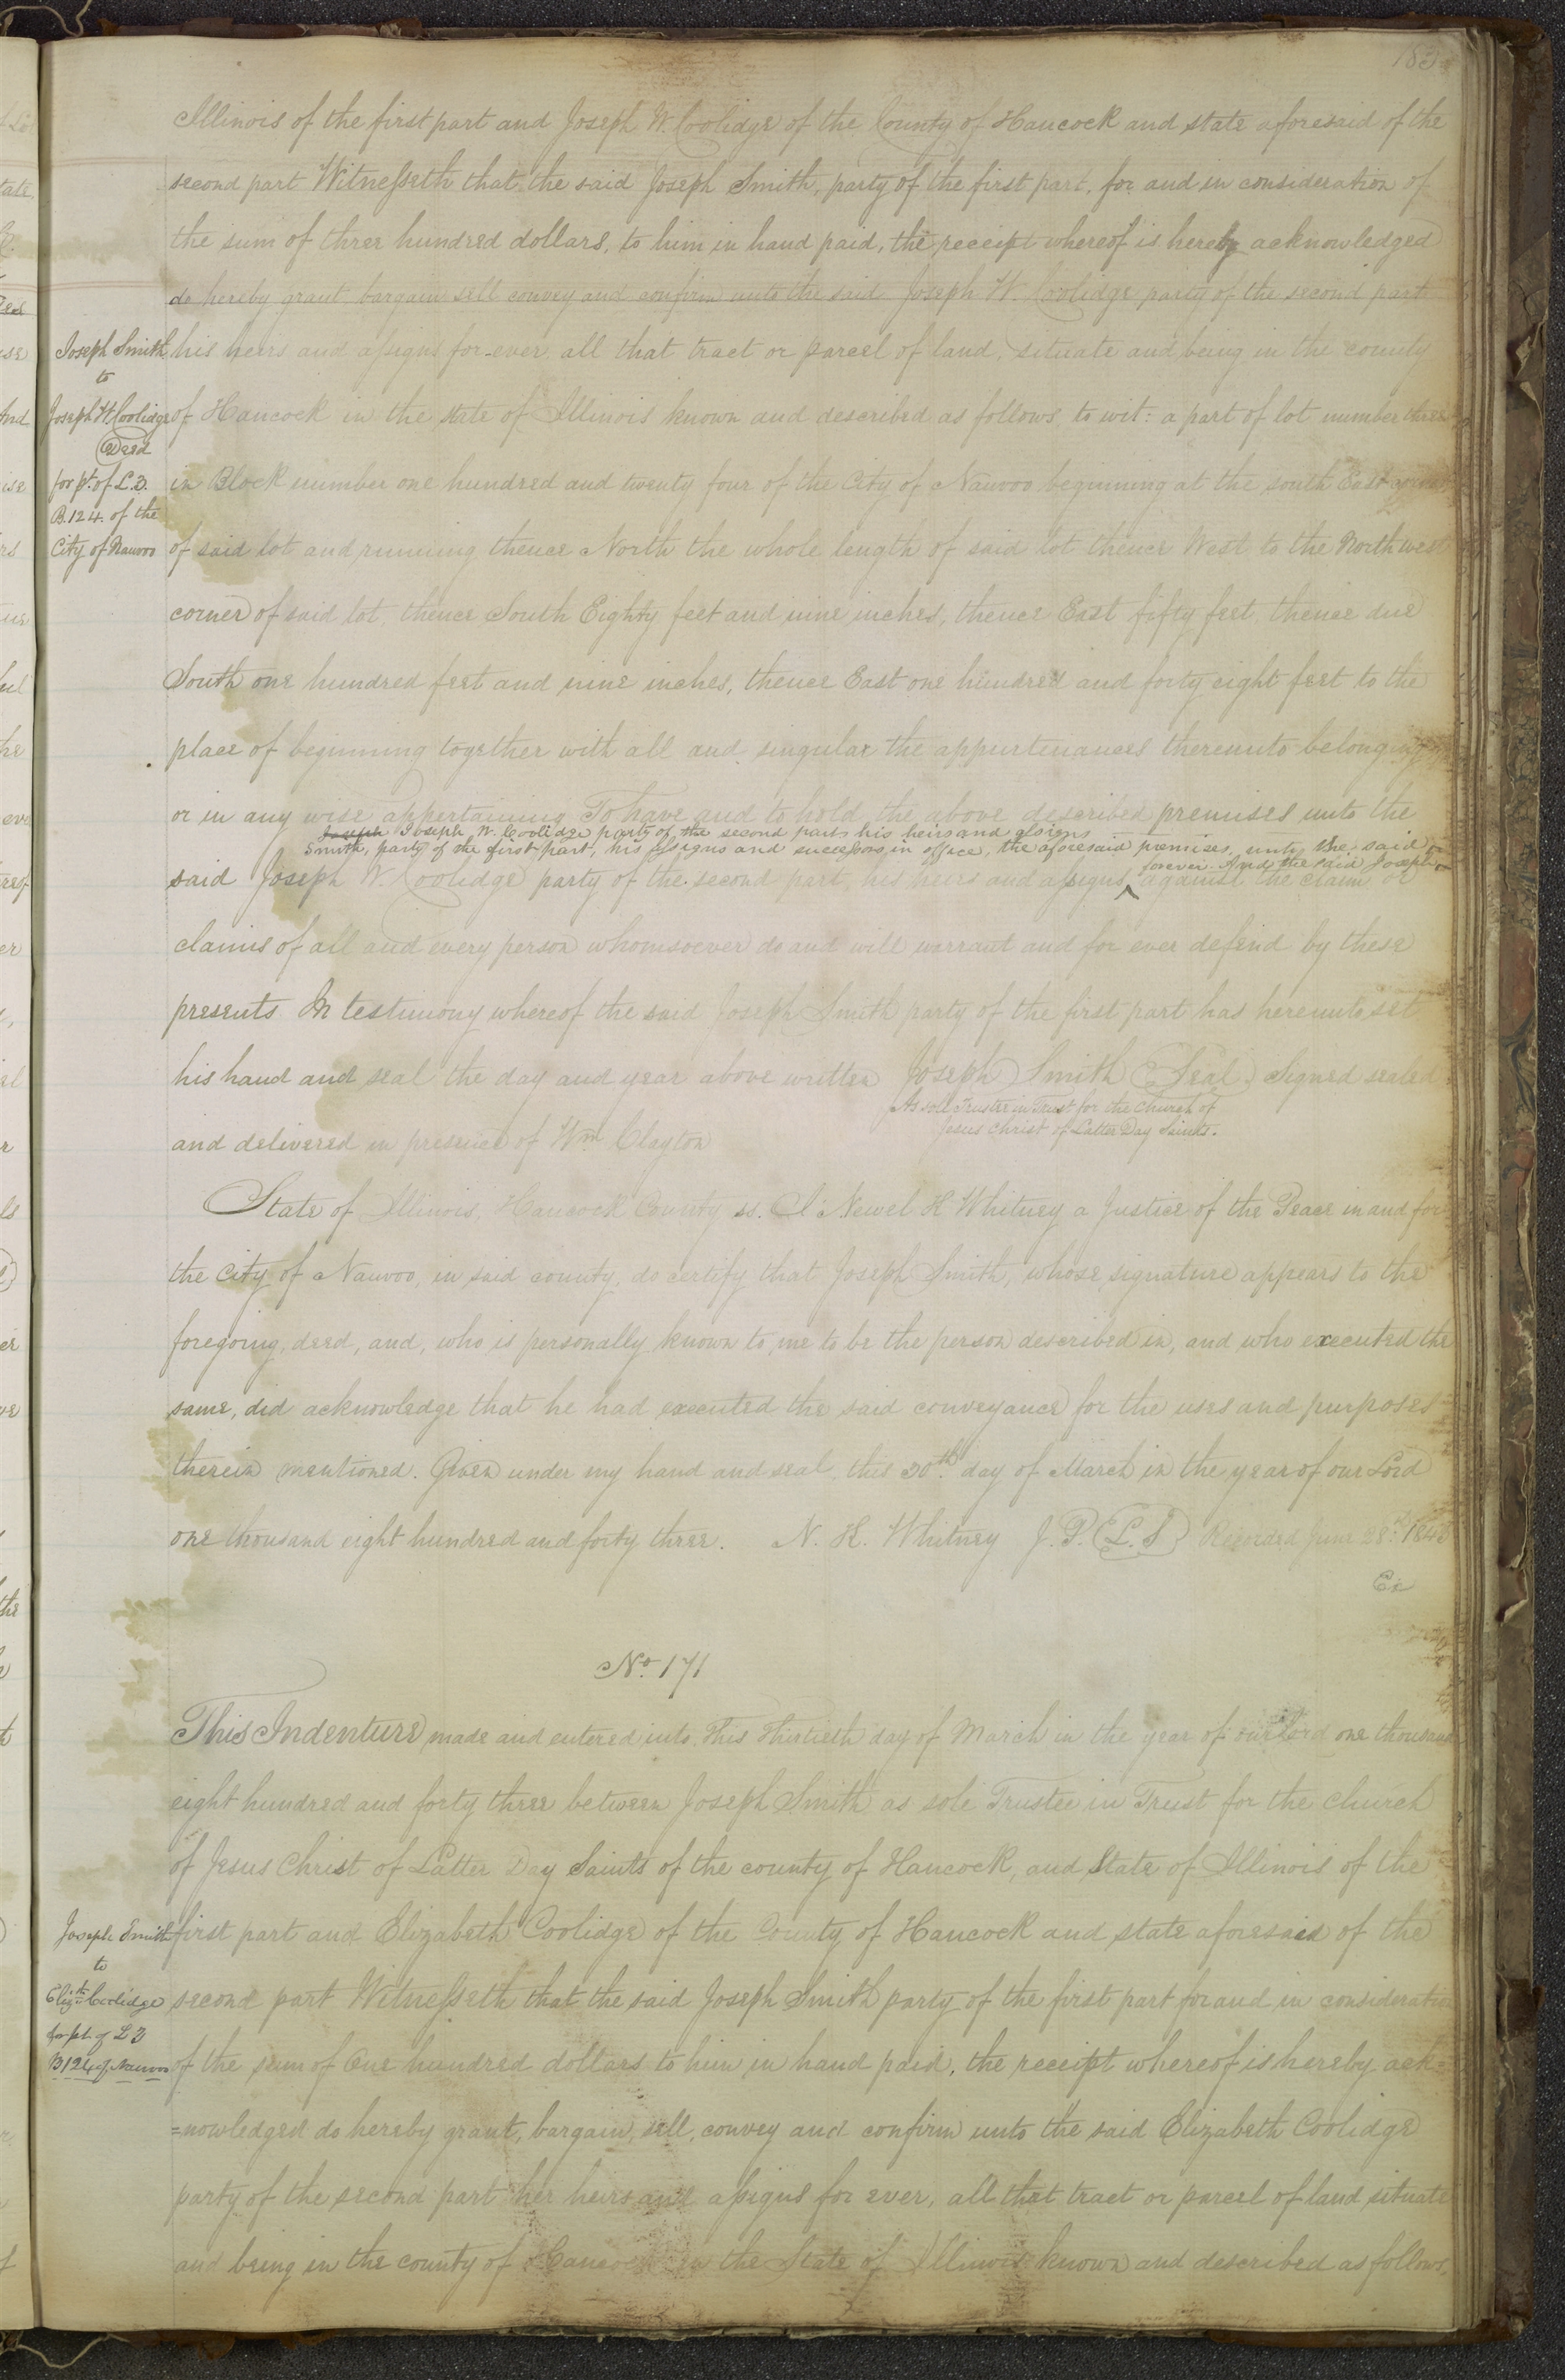 183
Illinois of the first part and Joseph W. Coolidge of the County of Hancock and state aforesaid of the
second part Witnesseth that the said Joseph Smith, party of the first part, for and in consideration of
the sum of three hundred dollars, to him in hand paid, the receipt whereof is hereby acknowledged
do hereby grant bargain sell convey and confirm unto the said Joseph W. Coolidge party of the second part
his heirs and assigns for-ever, all that tract or parcel of land, situate and being in the county
of Hancock in the state of Illinois known and described as follows to wit: a part of lot number three
in Block number one hundred and twenty four of the City of Nauvoo beginning at the south East corner
of said lot and running thence North the whole length of said lot thence West to the North west
corner of said lot, thence South Eighty feet and nine inches, thence East fifty feet, thence due
South one hundred feet and nine inches, thence East one hundred and forty eight feet to the
place of beginning together with all and singular the appurtenances thereunto belonging
or in any wise appertaining To have and to hold the above described premises unto the
said Joseph W. Coolidge party of the second part, his heirs and assigns ^ forever. And the said Joseph
Smith, party of the first part, his assigns and successors in office, the aforesaid premises, unto the said
Joseph Joseph W. Coolidge party of the second part his heirs and assigns
against the claim or
claims of all and every person whomsoever do and will warrant and for ever defend by these
presents. In testimony whereof the said Joseph Smith party of the first part has hereunto set
his hand and seal the day and year above written Joseph Smith (Seal) Signed sealed
As sole Trustee in Trust for the Church of
Jesus Christ of Latter Day Saints.
and delivered in presence of Wm Clayton
Joseph Smith
to
Joseph W. Coolidge
Deed
for pt. of L. 3.
B. 124. of the
City of Nauvoo
State of Illinois, Hancock County ss. I Newel K Whitney a Justice of the Peace in and for
the City of Nauvoo, in said county, do certify that Joseph Smith, whose signature appears to the
foregoing, deed, and, who is personally known to me to be the person described in, and who executed the
same, did acknowledge that he had executed the said conveyance for the uses and purposes
therein mentioned. Given under my hand and seal, this 30th day of March in the year of our Lord
one thousand eight hundred and forty three. N. K. Whitney J. P. (L. S) Recorded June 28th 1843
Ex
No. 171
This Indenture made and entered into this thirtieth day of March in the year of our Lord one thousand
eight hundred and forty three between Joseph Smith as sole Trustee in Trust for the Church
of Jesus Christ of Latter Day Saints of the county of Hancock, and State of Illinois of the
first part and Elizabeth Coolidge of the County of Hancock and state aforesaid of the
second part Witnesseth that the said Joseph Smith party of the first part for and in consideration
of the sum of One hundred dollars to him in hand paid, the receipt whereof is hereby ack-
=nowledged do hereby grant, bargain, sell, convey and confirm unto the said Elizabeth Coolidge
party of the second part her heirs and assigns for ever, all that tract or parcel of land situate
and being in the county of Hancock in the State of Illinois known and described as follows,
Joseph Smith
to
Elizth Coolidge
for pt. of L 3
B 124 of Nauvoo